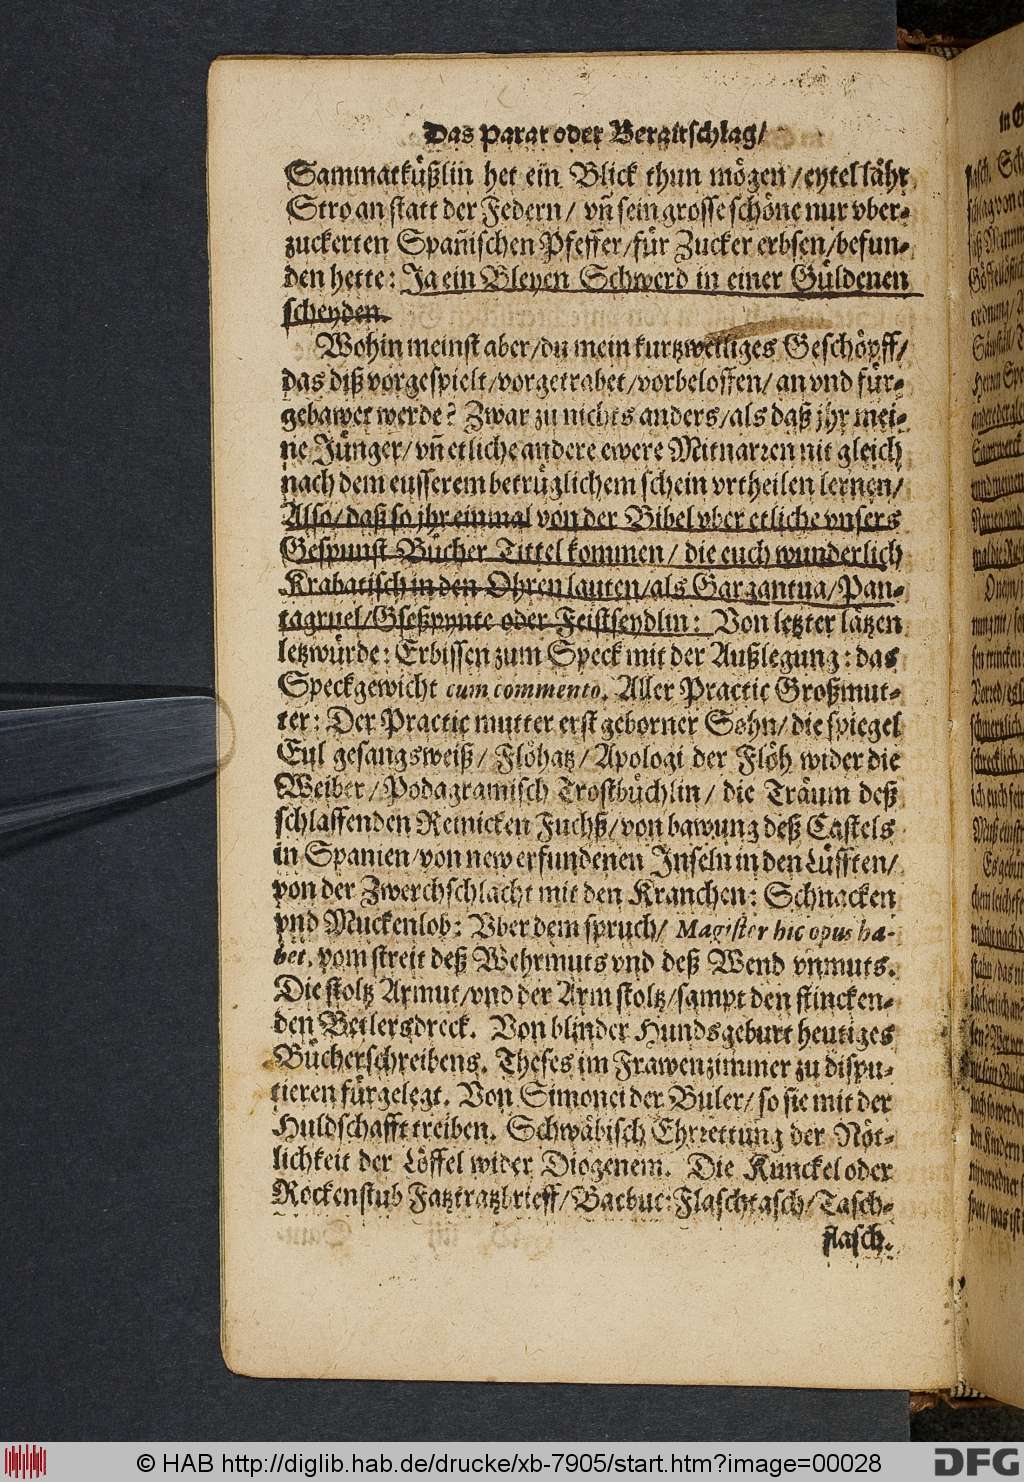 Das parat oder Beraitschlag/
Sammatküßlin het ein Blick thun mögen/eytel lähr
Stro an statt der Federn/ vñ sein grosse schöne nur vber-
zuckerten Spañischen Pfeffer/für Zucker erbsen/befun-
den hette: Ja ein Bleyen Schwerd in einer Güldenen
scheyden.
Wohin meinst aber/du mein kurtzweiliges Geschöpff/
das diß vorgespielt/vorgetrabet/vorbeloffen/an vnd für-
gebawet werde? Zwar zu nichts anders/als daß jhr mei-
ne Jünger/vñ etliche andere ewere Mitnarren nit gleich
nach dem eusserem betrüglichem schein vrtheilen lernen/
Also/daß so jhr einmal von der Bibel vber etliche vnsers
Gespunst Bücher Tittel kommen/ die euch wunderlich
Krabatisch in den Ohren lauten/als Gargantua/Pan-
tagruel/Gseßpynte oder Feistseydlin: Von letzter lätzen
letzwürde: Erbissen zum Speck mit der Außlegung: das
Speckgewicht cum commento. Aller Practic Großmut-
ter: Der Practic mutter erst geborner Sohn/die spiegel
Eul gesangsweiß/ Flöhatz/Apologi der Flöh wider die
Weiber/Podagramisch Trostbüchlin/ die Träum deß
schlaffenden Reinicken Fuchß/von bawung deß Castels
in Spanien/von new erfundenen Inseln in den Lüfften/
von der Zwerchschlacht mit den Kranchen: Schnacken
vnd Muckenlob: Vber dem spruch/ Magister hic opus ha-
bet. vom streit deß Wehrmuts vnd deß Wend vnmuts.
Die stoltz Armut/vnd der Arm stoltz/sampt den stincken-
den Betlersdreck. Von blinder Hundsgeburt heutiges
Bücherschreibens. Theses im Frawenzimmer zu dispu-
tieren fürgelegt. Von Simonei der Buler/so sie mit der
Huldschafft treiben. Schwäbisch Ehrrettung der Nöt-
lichkeit der Löffel wider Diogenem. Die Kunckel oder
Rockenstub Fatztratzbrieff/Bacbuc: Flaschtasch/Tasch-
flasch.
© HAB http://diglib.hab.de/drucke/xb-7905/start.htm?image=00028
DFG